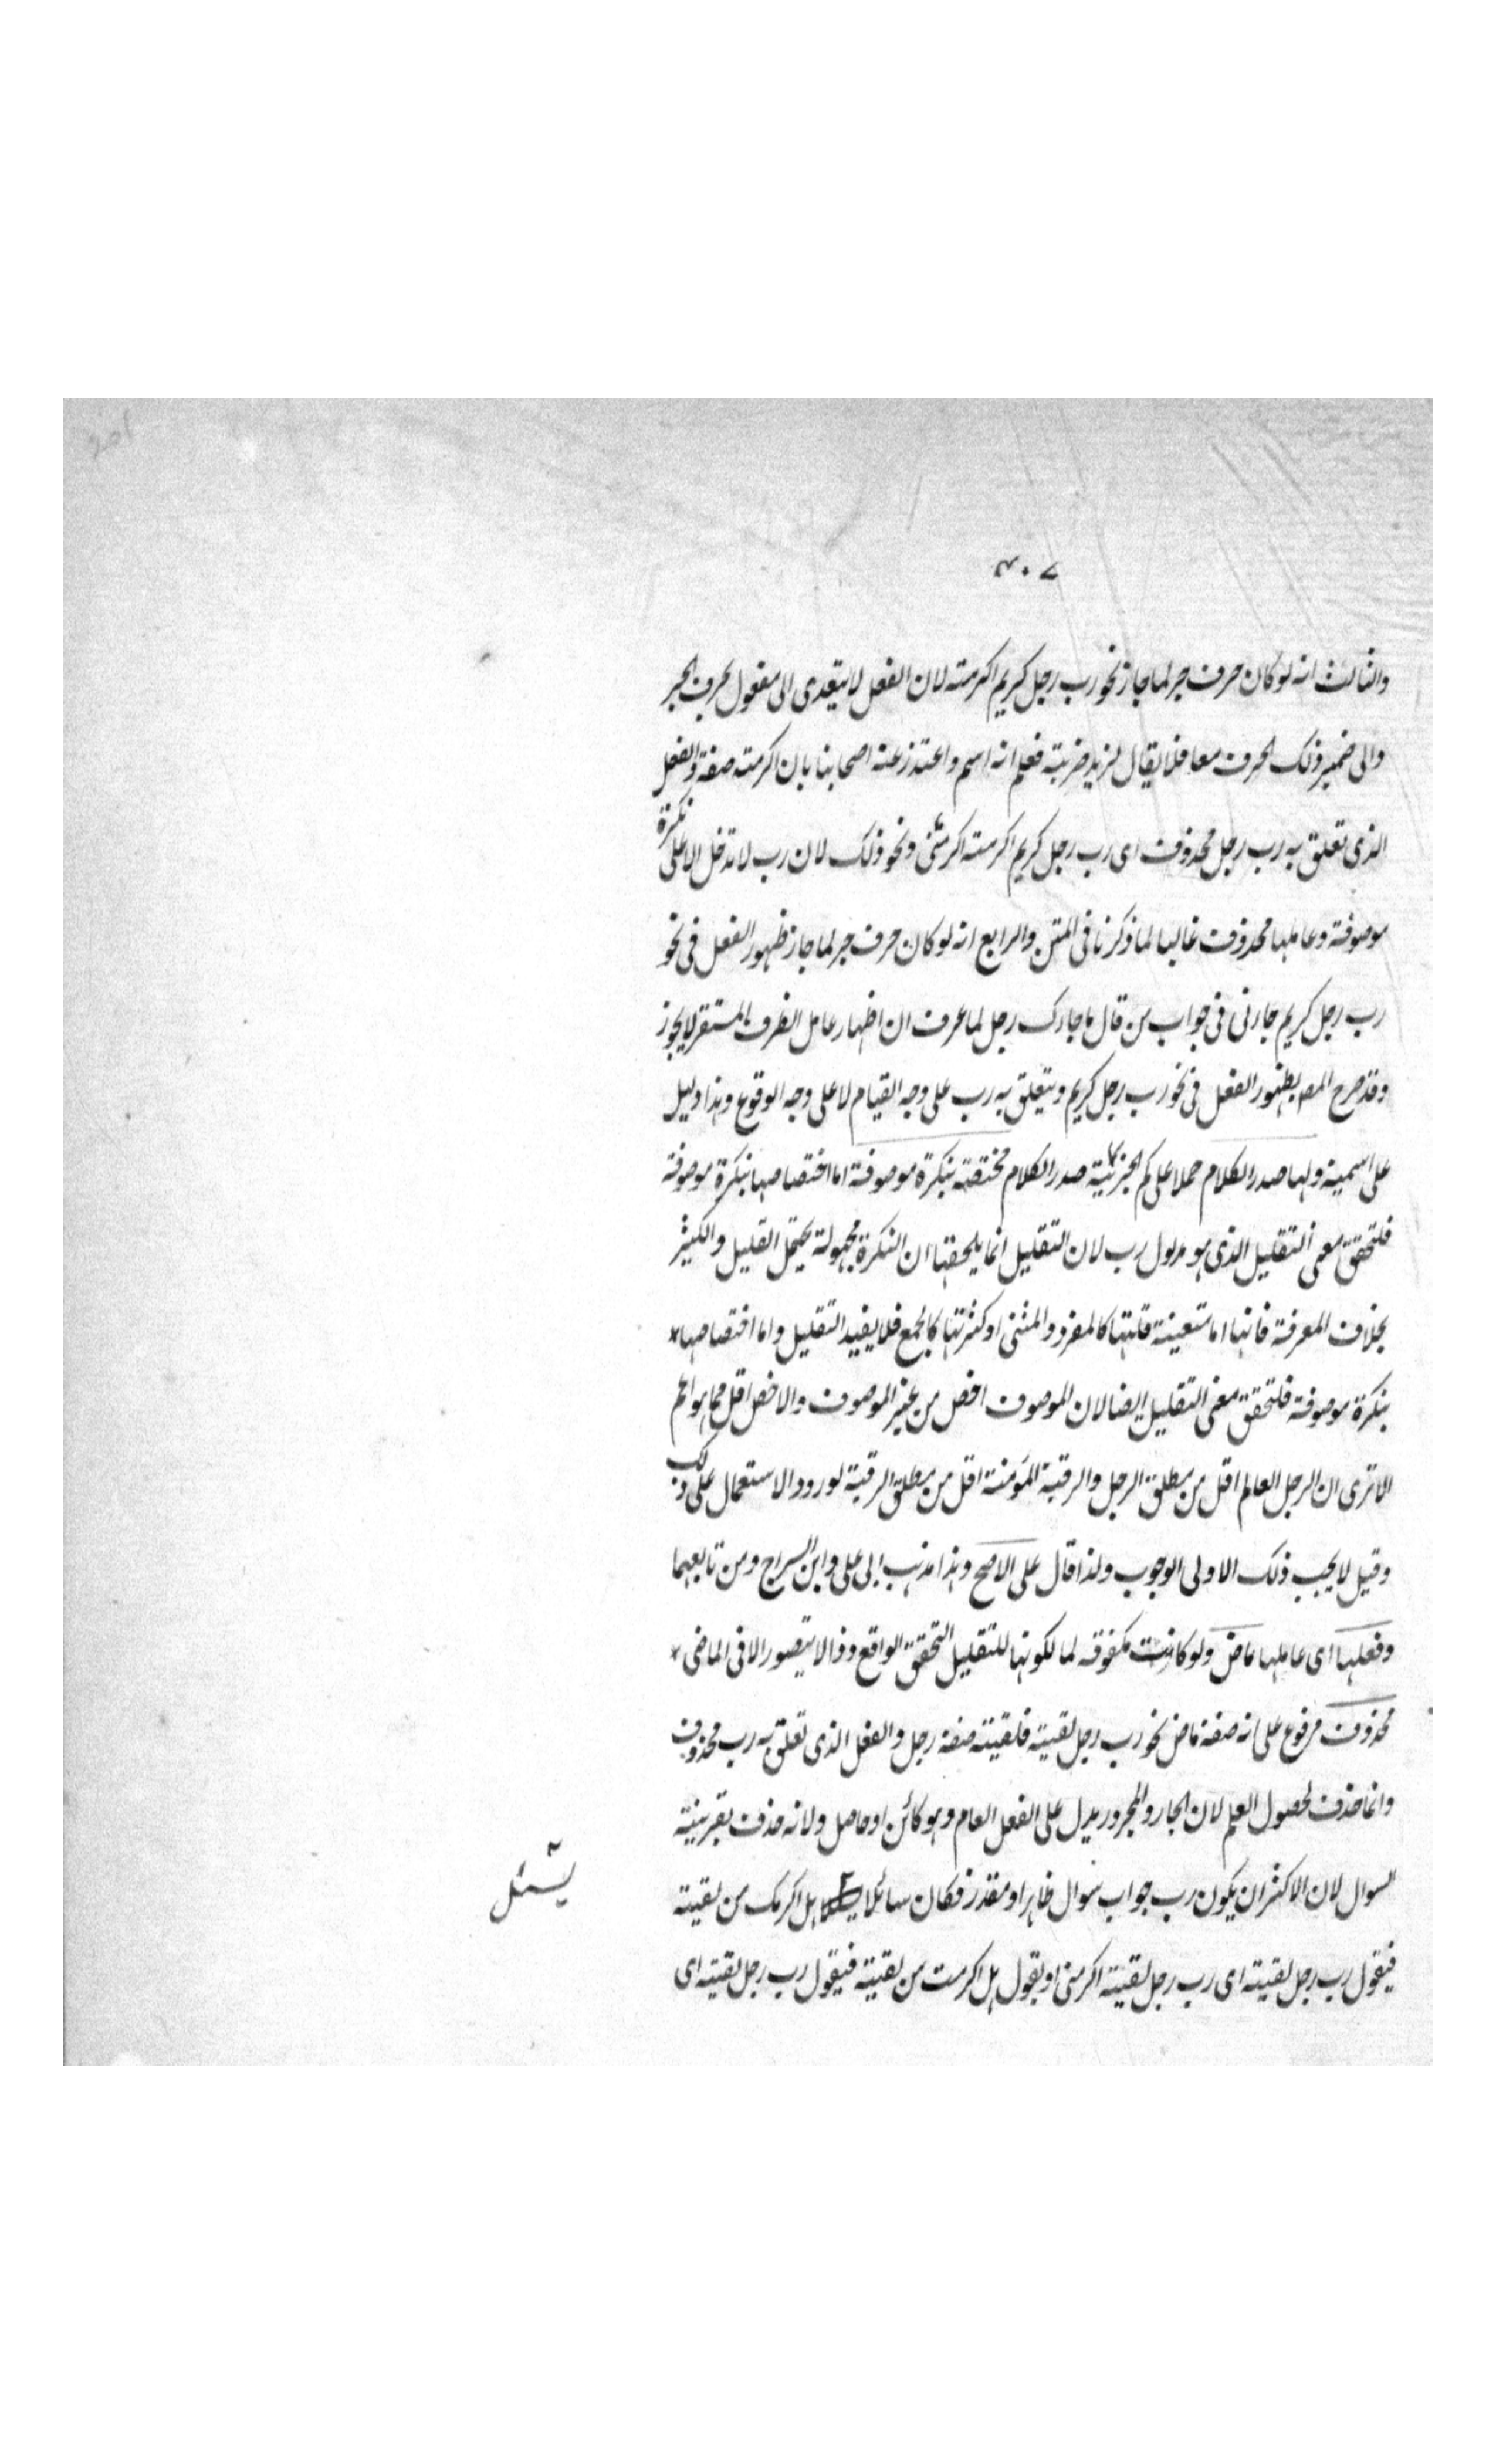 ٣٠٧
والثالث انه لو كان حرف جر لما جاز نحو رب رجل كريم اكرمته لان الفعل لا يتعدى الى مفعول بحرف الجر
والى ضمير ذلك الحرف معا فلا يقال لزيد ضربته فعلم انه اسم واعتذر عنه اصحابنا بان اكرمته صفة والفعل
الذى تعلق به رب رجل محذوف اى رب رجل كريم اكرمته اكرمنى ونحو ذلك لان رب لا تدخل الا على نكرة
موصوفة وعاملها محذوف غالبا لما ذكرنا فى المتن والرابع انه لو كان حرف جر لما جاز ظهور الفعل فى نحو
رب رجل كريم جاءنى فى جواب من قال ما جاءك رجل لما عرف ان اظهار عامل الظرف المستقر لا يجوز
وقد صرح المص بظهور الفعل فى نحو رب رجل كريم ويتعلق به رب على وجه القيام لا على وجه الوقوع وهذا دليل
على اسمية ولها صدر الكلام حملا على كم الخبرية صدر الكلام مختصة بنكرة موصوفة اما اختصاصها بنكرة موصوفة
فلتحقق معنى التقليل الذى هو مدلول رب لان التقليل انما يلحقها ان النكرة مجهولة يحتمل القليل والكثير
بخلاف المعرفة فانها اما متعينة قلتها كالمفرد والمثنى او كثرتها كالجمع فلا يفيد التقليل واما اختصاصها*
بنكرة موصوفة فلتحقق معنى التقليل ايضا لان الموصوف اخص من غير الموصوف والاخص اقل مما هو اعم
الا ترى ان الرجل العالم اقل من مطلق الرجل والرقبة المؤمنة اقل من مطلق الرقبة لورود الاستعمال على ذلك
وقيل لا يجب ذلك الاولى الوجوب ولذا قال على الاصح وهذا مذهب ابى على وابن السراج ومن تابعهما
وفعلها اى عاملها ماض ولو كانت مكفوفه لما لكونها للتقليل التحقق الواقع وذا لا يتصور الا فى الماضى*
محذوف مرفوع على انه صفة ماض نحو رب رجل لقيته فلقيته صفة رجل والفعل الذى تعلق به رب محذوف
وانما حذف لحصول العلم لان الجار والمجرور يدل على الفعل العام وهو كائن او حاصل ولانه حذف بقرينة
السوال لان الاكثر ان يكون رب جواب سوال ظاهر او مقدر فكان سائلا هل اكرمك من لقيته
فيقول رب رجل لقيته اى رب رجل لقيته اكرمنى او يقول هل اكرمت من لقيته فيقول رب رجل لقيته اى